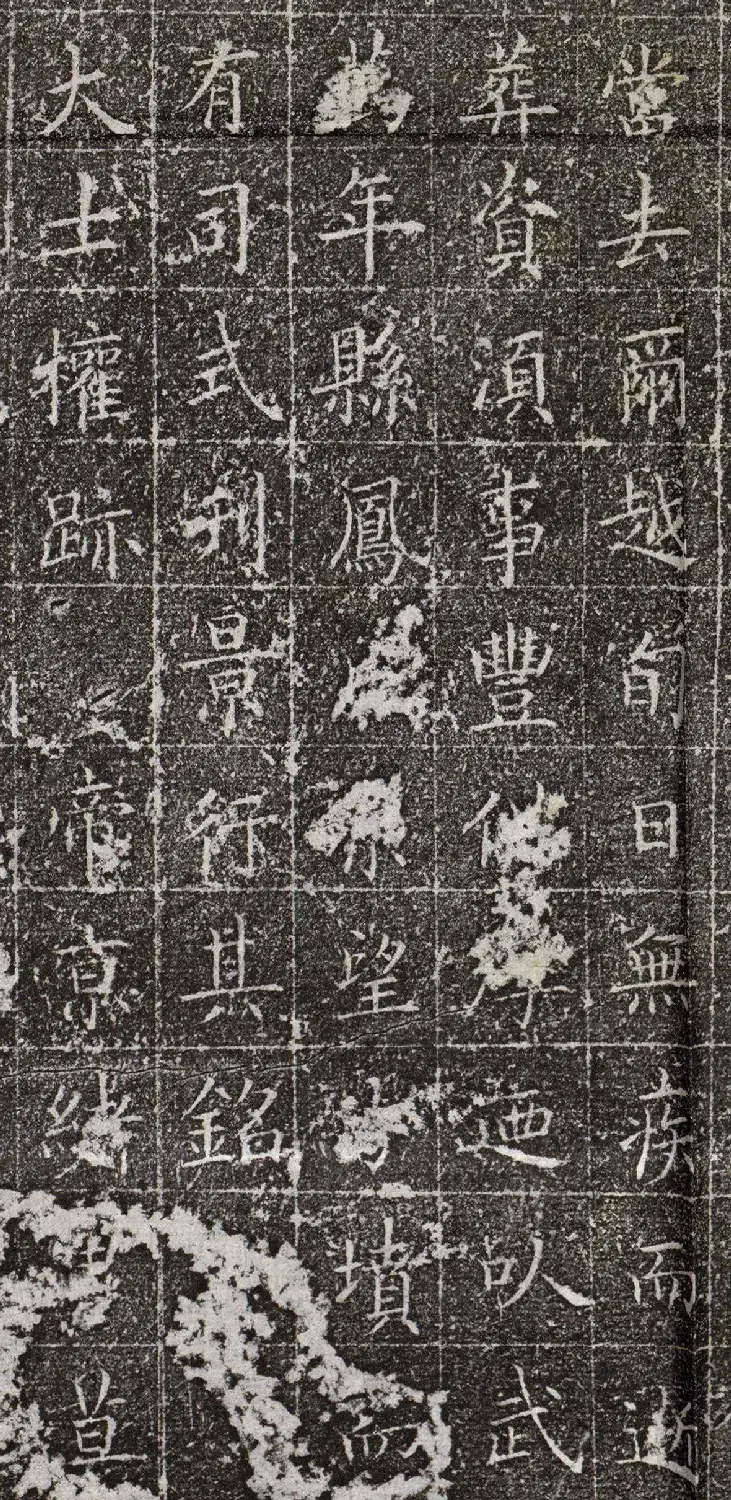 當去爾越旬日無疾而逝
葬資須事豐厚廼以武
年縣鳳望墳而
有司式刊景行其銘
大士權跡帝京緒草